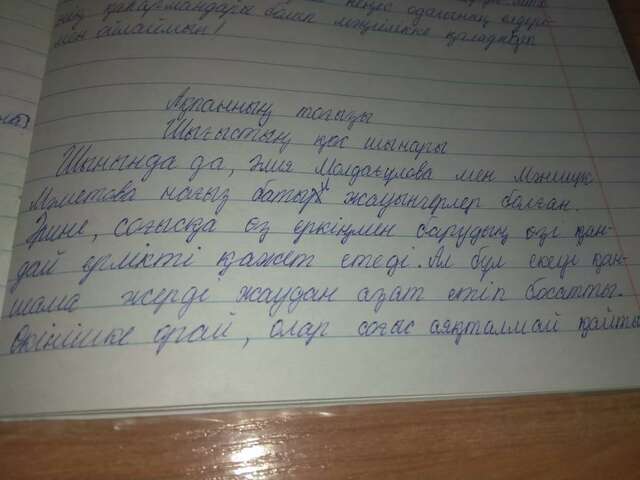 нің қаһармандары болып мәңгілікке қаладың
деп ойлаймын!
на)
Ақпанның тоғызы
Шығыстың қос шынары
Шынында да, Әлия Молдағұлова мен Мәншүк
Мәметова нағыз батыр жауынгерлер болған.
Әрине, соғысқа өз еркіңмен барудың өзі қан-
дай ерлікті қажет етеді. Ал бұл екеуі қан-
шама жерді жаудан азат етіп босатты.
Өкінішке орай, олар соғыс аяқталмай қайты